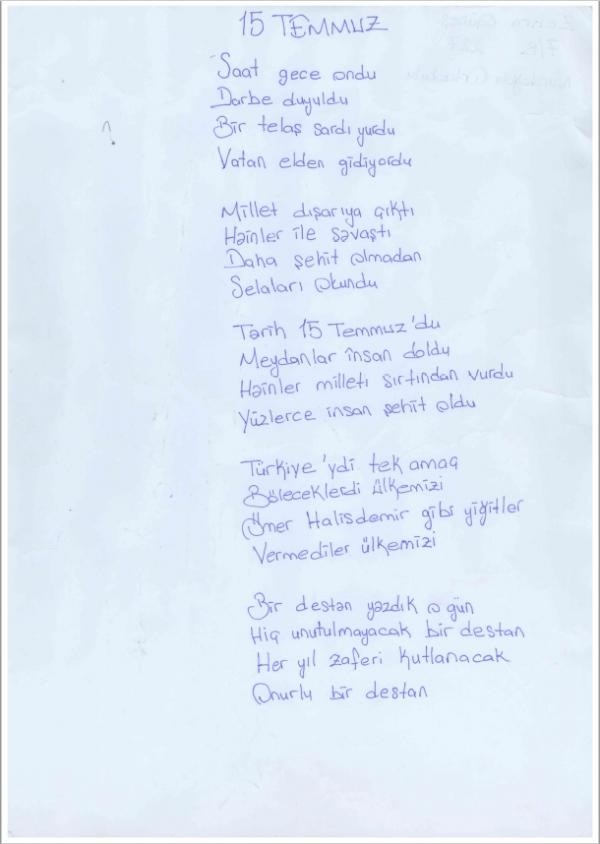 15 TEMMUZ
Saat gece ondu
Darbe duyuldu
Bir telaş sardı yurdu
Vatan elden gidiyordu
Millet dışarıya çıktı
Hainler ile savaştı
Daha şehit olmadan
Selaları okundu
Tarih 15 Temmuz'du
Meydanlar insan doldu
Hainler milleti sırtından vurdu
Yüzlerce insan şehit oldu
Türkiye'ydi tek amaç
Böleceklerdi ülkemizi
Ömer Halisdemir gibi yiğitler
Vermediler ülkemizi
Bir destan yazdık o gün
Hiç unutulmayacak bir destan
Her yıl zaferi kutlanacak
Onurlu bir destan